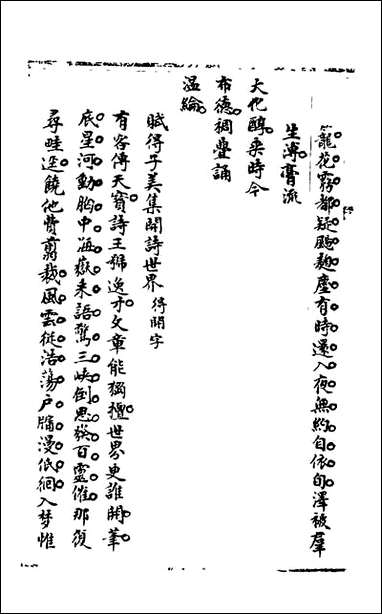 籠花霧都疑颺麴塵有時還入夜無約自依旬澤被羣
生溥膏流
大化醇乘時令
布德稠疊誦
温綸
賦得子美集開詩世界得開字
有客傳天寶詩王號逸才文章能獨擅世界更誰開筆
底星河動胸中海嶽來語驚三峽倒思發百靈催那復
尋畦逕饒他費剪裁風雲從浩蕩戶牖漫低徊入夢惟